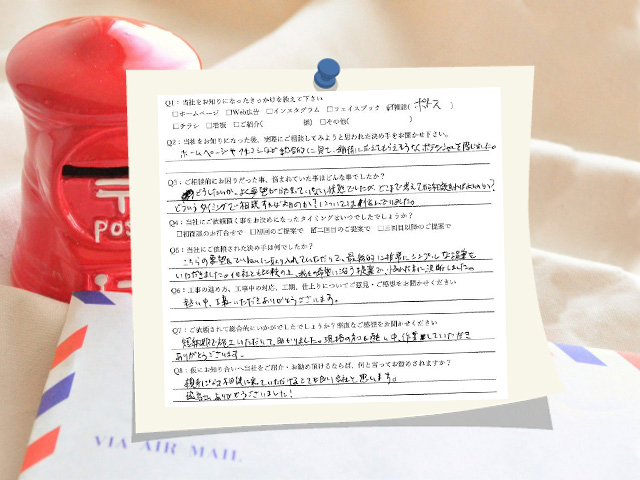 Q1：当社をお知りになったきっかけを教えて下さい
□ホームページ □Web広告 □インスタグラム □フェイスブック ☑雑誌( ポトス )
□チラシ □看板 □ご紹介( 様) □その他( )
Q2：当社をお知りになった後、実際にご相談してみようと思われた決め手をお聞かせ下さい。
ホームページや を 的に見て、期待に応えてもらえそうなポテンシャルを感じました。
Q3：ご相談前にお困りだった事、悩まれていた事はどんな事でしたか？
どうしたいか、よく希望が 状態でしたが、どこまで考えてから相談すればよいのか？
どういうタイミングで相談すれば良いのか？については
Q4：当社にご依頼頂く事をお決めになったタイミングはいつでしたでしょうか？
□初面談のお打合せで □初回のご提案で ☑二回目のご提案で □三回目以降のご提案で
Q5：当社にご依頼された決め手は何でしたか？
こちらの要望をていねいに取り入れていただいて、最終的に非常にシンプルな提案を
いただきました。他社とも比較の上、私の希望に沿う提案で、 に決断しました。
Q6：工事の進め方、工事中の対応、工期、仕上りについてご意見・ご感想をお聞かせください
暑い中、工事いただきありがとうございます。
Q7：ご依頼されて総合的にいかがでしたでしょうか？率直なご感想をお聞かせください
短期間で施工いただいて、助かりました。現場の方も暑い中、作業していただき
ありがとうございます。
Q8：仮にお知り合いへ当社をご紹介・お勧め頂けるならば、何と言ってお勧めされますか？
親身になって相談に乗っていただけるとても良い会社と思います。
ありがとうございました！
POS
VIA AIR MAIL